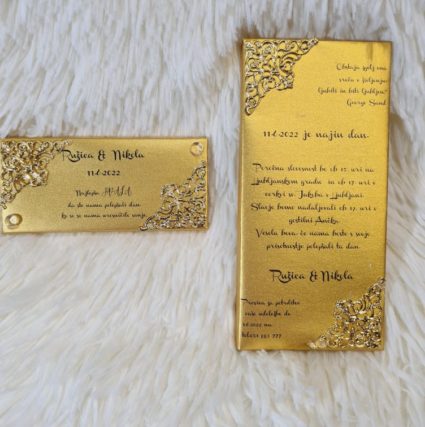 Ružica & Nikola
11.6.2022
Najlepša HVALA
da ste nama polepšali dan,
ko se je nama uresničile sanje.
Obstaja zgolj ena
sreča v življenju:
ljubiti in biti ljubljen.
George Sand
11.6.2022 je najin dan.
Poročna slovesnost bo ob 15. uri na
Ljubljanskem gradu in ob 17. uri v
cerkvi sv. Jakoba v Ljubljani.
Slavje bomo nadaljevali ob 19. uri v
gostilni
Vesela bova, če nama boste s svojo
prisotnostjo polepšali ta dan.
Ružica & Nikola
Prosiva za potrditev
vaše udeležbe do
2022 na